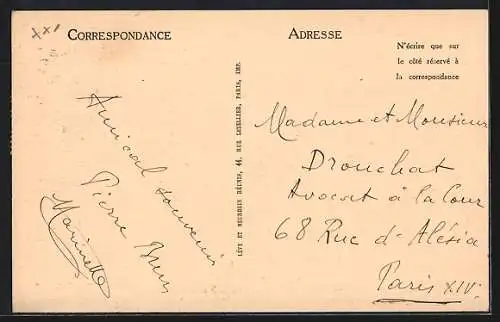 xxx
CORRESPONDANCE
Amical souvenir
Pierre
Marinette
LÉVY ET NEURDEIN RÉUNIS, 44, RUE LETELLIER, PARIS, IMP.
ADRESSE
N'écrire que sur
le côté réservé à
la correspondance
Madame et Monsieur
Drouchat
Avocat à la Cour
68 Rue d'Alésia
Paris XIV.